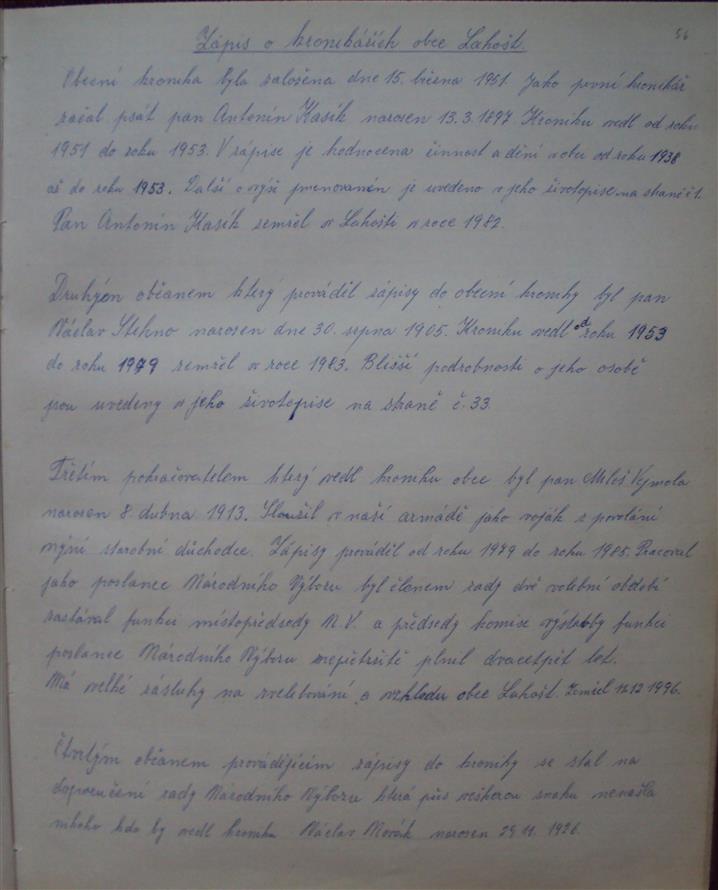 56
Zápis o kronikářích obce Lahošt.
Obecní kronika byla založena dne 15. března 1951. Jako první kronikář
začal psát pan Antonín Kasík narozen 13.3.1897. Kroniku vedl od roku
1951 do roku 1953. V zápise je hodnocena činnost a dění v obci od roku 1938
až do roku 1953. Další o výši jmenovaném je uvedeno v jeho životopise na straně č1.
Pan Antonín Kasík zemřel v Lahošti v roce 1982.
Druhým občanem který prováděl zápisy do obecní kroniky byl pan
Václav Stehno narozen dne 30. srpna 1905. Kroniku vedl od roku 1953
do roku 1979 zemřel v roce 1983. Bližší podrobnosti o jeho osobě
jsou uvedeny v jeho životopise na straně č. 33.
Třetím pokračovatelem který vedl kroniku obce byl pan Miloš Vejmola
narozen 8. dubna 1913. Sloužil v naší armádě jako voják z povolání
nyní starobní důchodce. Zápisy prováděl od roku 1979 do roku 1985. Pracoval
jako poslanec Národního Výboru byl členem rady dvě volební období
zastával funkci místopředsedy N.V. a předsedy komise výstavby funkci
poslance Národního Výboru nepřetržitě plnil dvacetpět let.
Má velké zásluhy na zvelebování a vzhledu obce Lahošt. Zemřel 12.12 1996.
Čtvrtým občanem provádějícím zápisy do kroniky se stal na
doporučení rady Národního Výboru která přes veškerou snahu nenašla
nikoho kdo by vedl kroniku Václav Novák narozen 29.11. 1926.